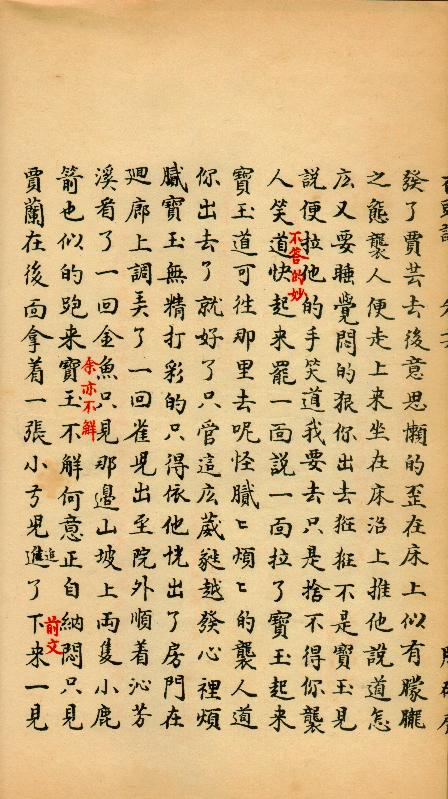 發了賈芸去後意思懶的歪在床上似有朦朧
之態襲人便走上來坐在床沿上推他說道怎
庅又要睡覺悶的狠你出去𨓈𨓈不是寶玉見
說便拉他的手笑道我要去只是捨不得你襲
不答的妙
人笑道快起來罷一面說一面拉了寶玉起來
寶玉道可徃那里去呢怪膩〻煩〻的襲人道
你出去了就好了只管這庅葳蕤越發心裡煩
膩寶玉無精打彩的只得依他恍出了房門在
廻廊上調弄了一回雀児出至院外順着沁芳
溪看了一回金魚只見那邉山坡上両隻小鹿
余亦不解
箭也似的跑来寶玉不解何意正自納悶只見
前文
賈蘭在後面拿着一張小弓児進追了下来一見